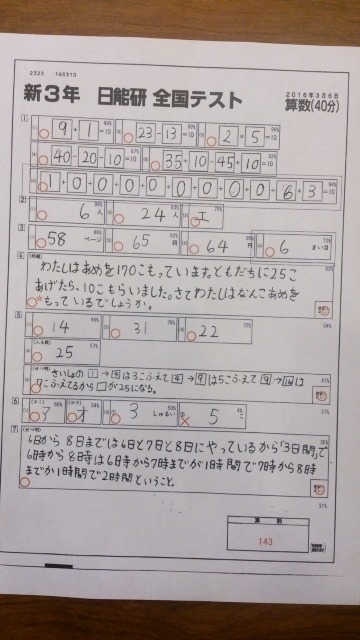 2323 160310
2016年3月6日
新3年 日能研 全国テスト 算数(40分)
1
9+1=10 23-13=10 2×5=10
40-20-10=10 35+10-45+10=10
1+0+0+0+0+0+0+0+6+3=10
2 6人 24人 エ
3 58ページ 65 64 6
4
わたしはあめを170こもっています。ともだちに25こ
あげたら、10こもらいました。さてわたしはなんこあめを
もっているでしょうか。
5 14 31 22
25
さいしょの 1→4は3こふえて 4→9は5こふえて 9→16は
7こふえてるから□が25になる。
6 ア オ 3しゅるい 5
7
6日から8日までは6日と7日と8日にやっているから「3日間」で
6時から8時は6時から7時までが1時間で7時から8時
までが1時間で2時間ということ。
算数
143